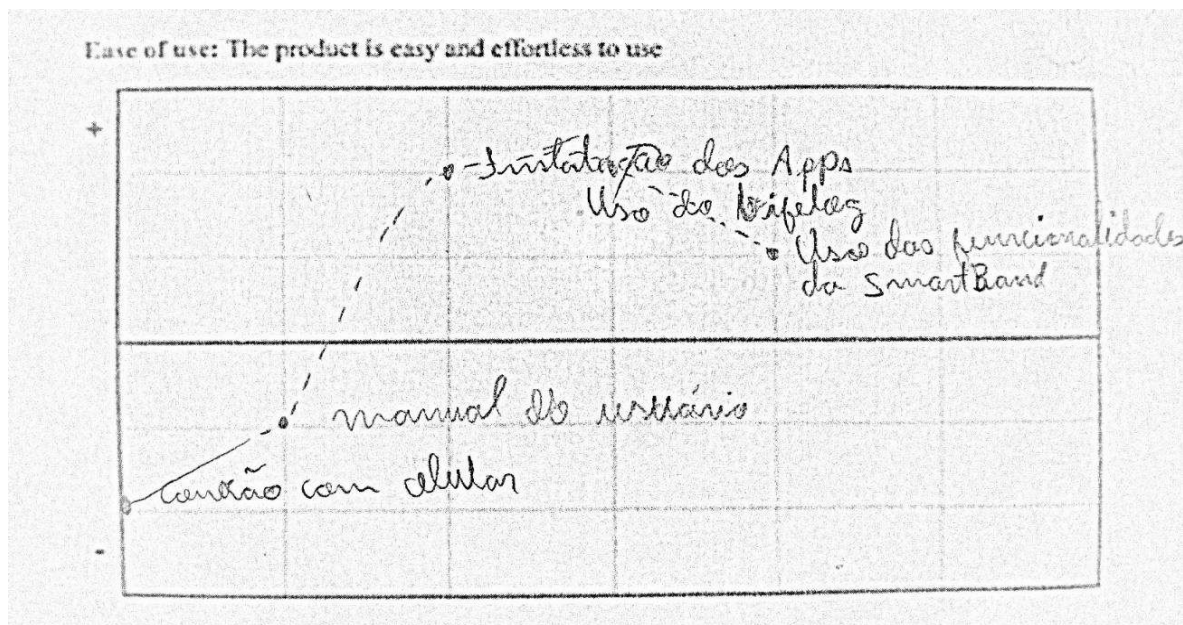 Ease of use: The product is easy and effortless to use
+
Instalação dos Apps
Uso do Lifelog
Uso das funcionalidades
da SmartBand
manual do usuário
conexão com celular
-